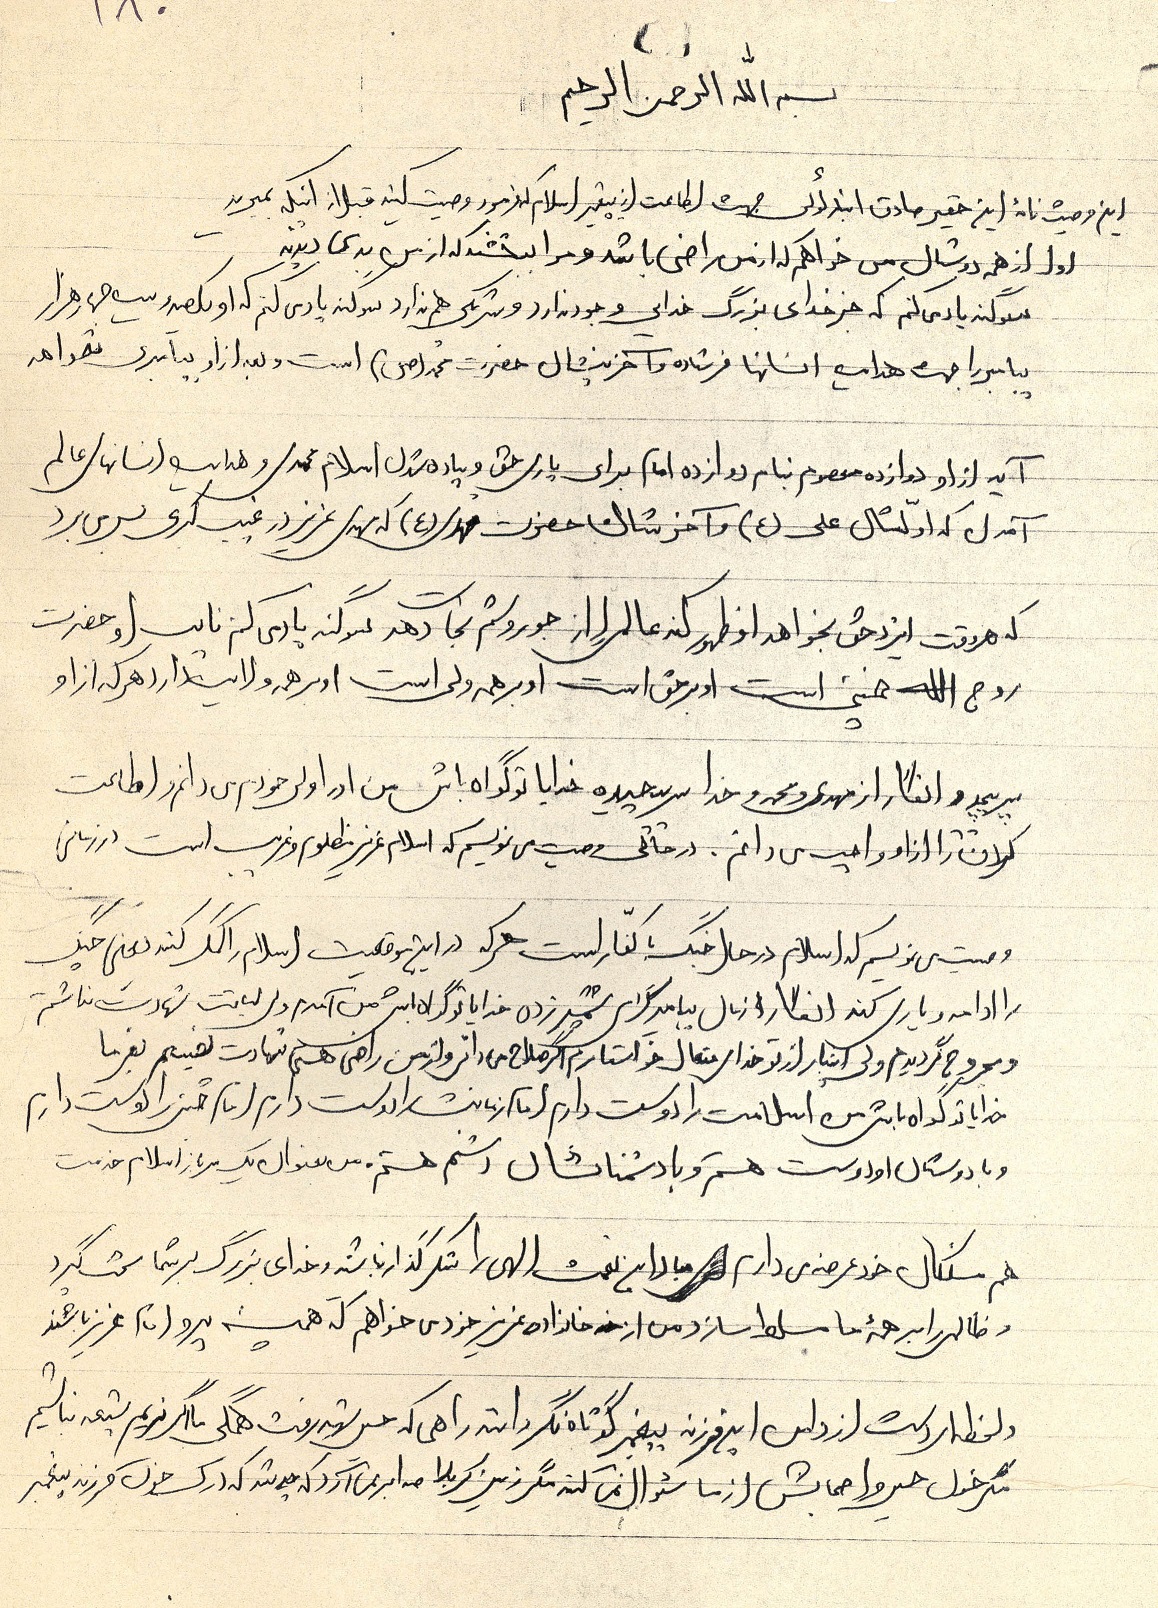 ۱۸۰
بسم الله الرحمن الرحیم
این وصیت نامهٔ این حقیر صادق جهت اطاعت از پیغمبر اسلام که فرمود وصیت کنید قبل از اینکه بمیرید
اول از همه دوستان می خواهم که از من راضی باشند و مرا ببخشند که از من بدی دیدند
سوگند یاد می کنم که جز خدای بزرگ خدایی وجود ندارد و شریکی هم ندارد سوگند یاد می کنم که او یکصد و بیست و چهار هزار
پیامبر را جهت هدایت انسانها فرستاده و آخرینشان حضرت محمد (ص) است و بعد از او پیامبری نخواهد
آمد از او دوازده معصوم بنام دوازده امام برای یاری حق و پیاده شدن اسلام محمدی و هدایت انسانهای عالم
آمدن که اولشان علی (ع) و آخرشان حضرت مهدی (ع) که مهدی عزیز در غیبت کبری بسر می برد
که هر وقت ایزد حق بخواهد او ظهور کند عالمی را از جور و ستم نجات دهد سوگند یاد می کنم نایب او حضرت
روح الله خمینی است او بر حق است او بر همه ولی است او بر همه ولایت دارد هر که از او
بپیچد انگار از مهدی و محمد و خدا سرپیچیده خدایا تو گواه باش من او را ولی خود می دانم و اطاعت
کردن را از او واجب می دانم . در حالی وصیت می نویسم که اسلام عزیز مظلوم و غریب است در زمانی
وصیت می نویسم که اسلام در حال جنگ با کفار است هر که در این موقعیت اسلام را کمک کند یعنی جنگ
را ادامه و یاری کند انگار از زمان پیامبر گرامی شمشیر زده خدایا تو گواه باش من آمدم ولی لیاقت شهادت نداشتم
و مجروح گردیدم ولی اینبار از تو خدای متعال خواستارم اگر صلاح می دانی و از من راضی هستی شهادت نصیبم بفرما
خدایا تو گواه باش من اسلامت را دوست دارم امام زمانت را دوست دارم امام خمینی را دوست دارم
و با دوستان او دوست هستم و با دشمنانشان دشمن هستم. من بعنوان یک سرباز اسلام خدمت
هم سنگران خود عرض می دارم مبادا این نعمت الهی را شکرگذار نباشند و خدای بزرگ بر شما سخت گیرد
و ظالمی را بر همهٔ ما مسلط سازد من از خانواده عزیز خود می خواهم که همیشه پیرو امام عزیز باشند
و لحظه ای دست از دامن این فرزند پیغمبر کوتاه نگردانند راهی که حسین شهید رفت همگی ما اگر نرویم شیعه نباشیم
مگر خون حسین و اصحابش از ما سئوال نمی کند مگر زمین کربلا که چه شد که خون فرزند پیغمبر